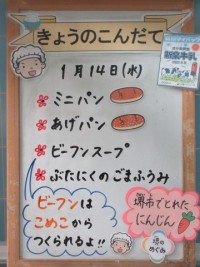 きょうのこんだて
1月14日(水)
ミニパン
あげパン
ビーフンスープ
ぶたにくのごまふうみ
ビーフンは
こめこから
つくられるよ!!
堺市でとれた
にんじん
堺のめぐみ